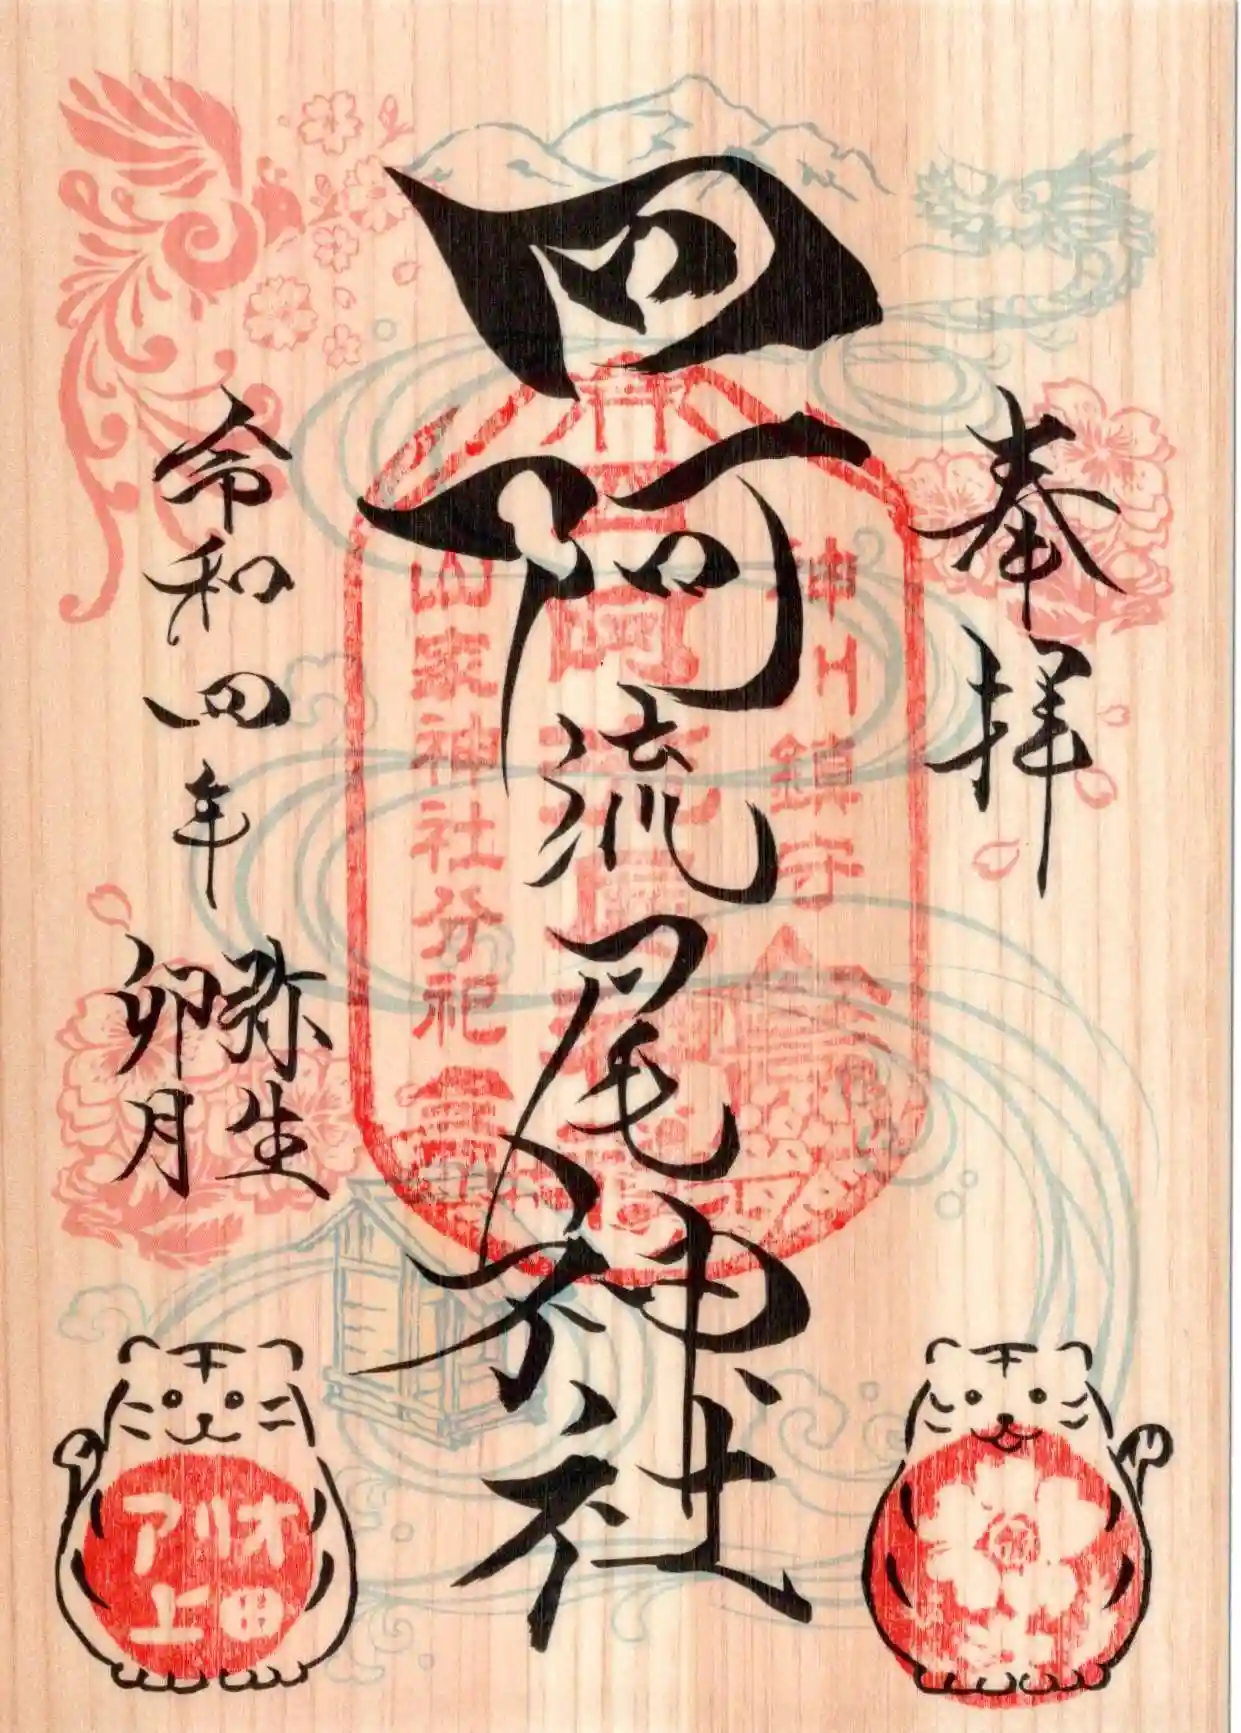 奉拝
四阿流尾神社
神川鎮守
山家神社分祀
令和四年
弥生
卯月
アリオ
上田